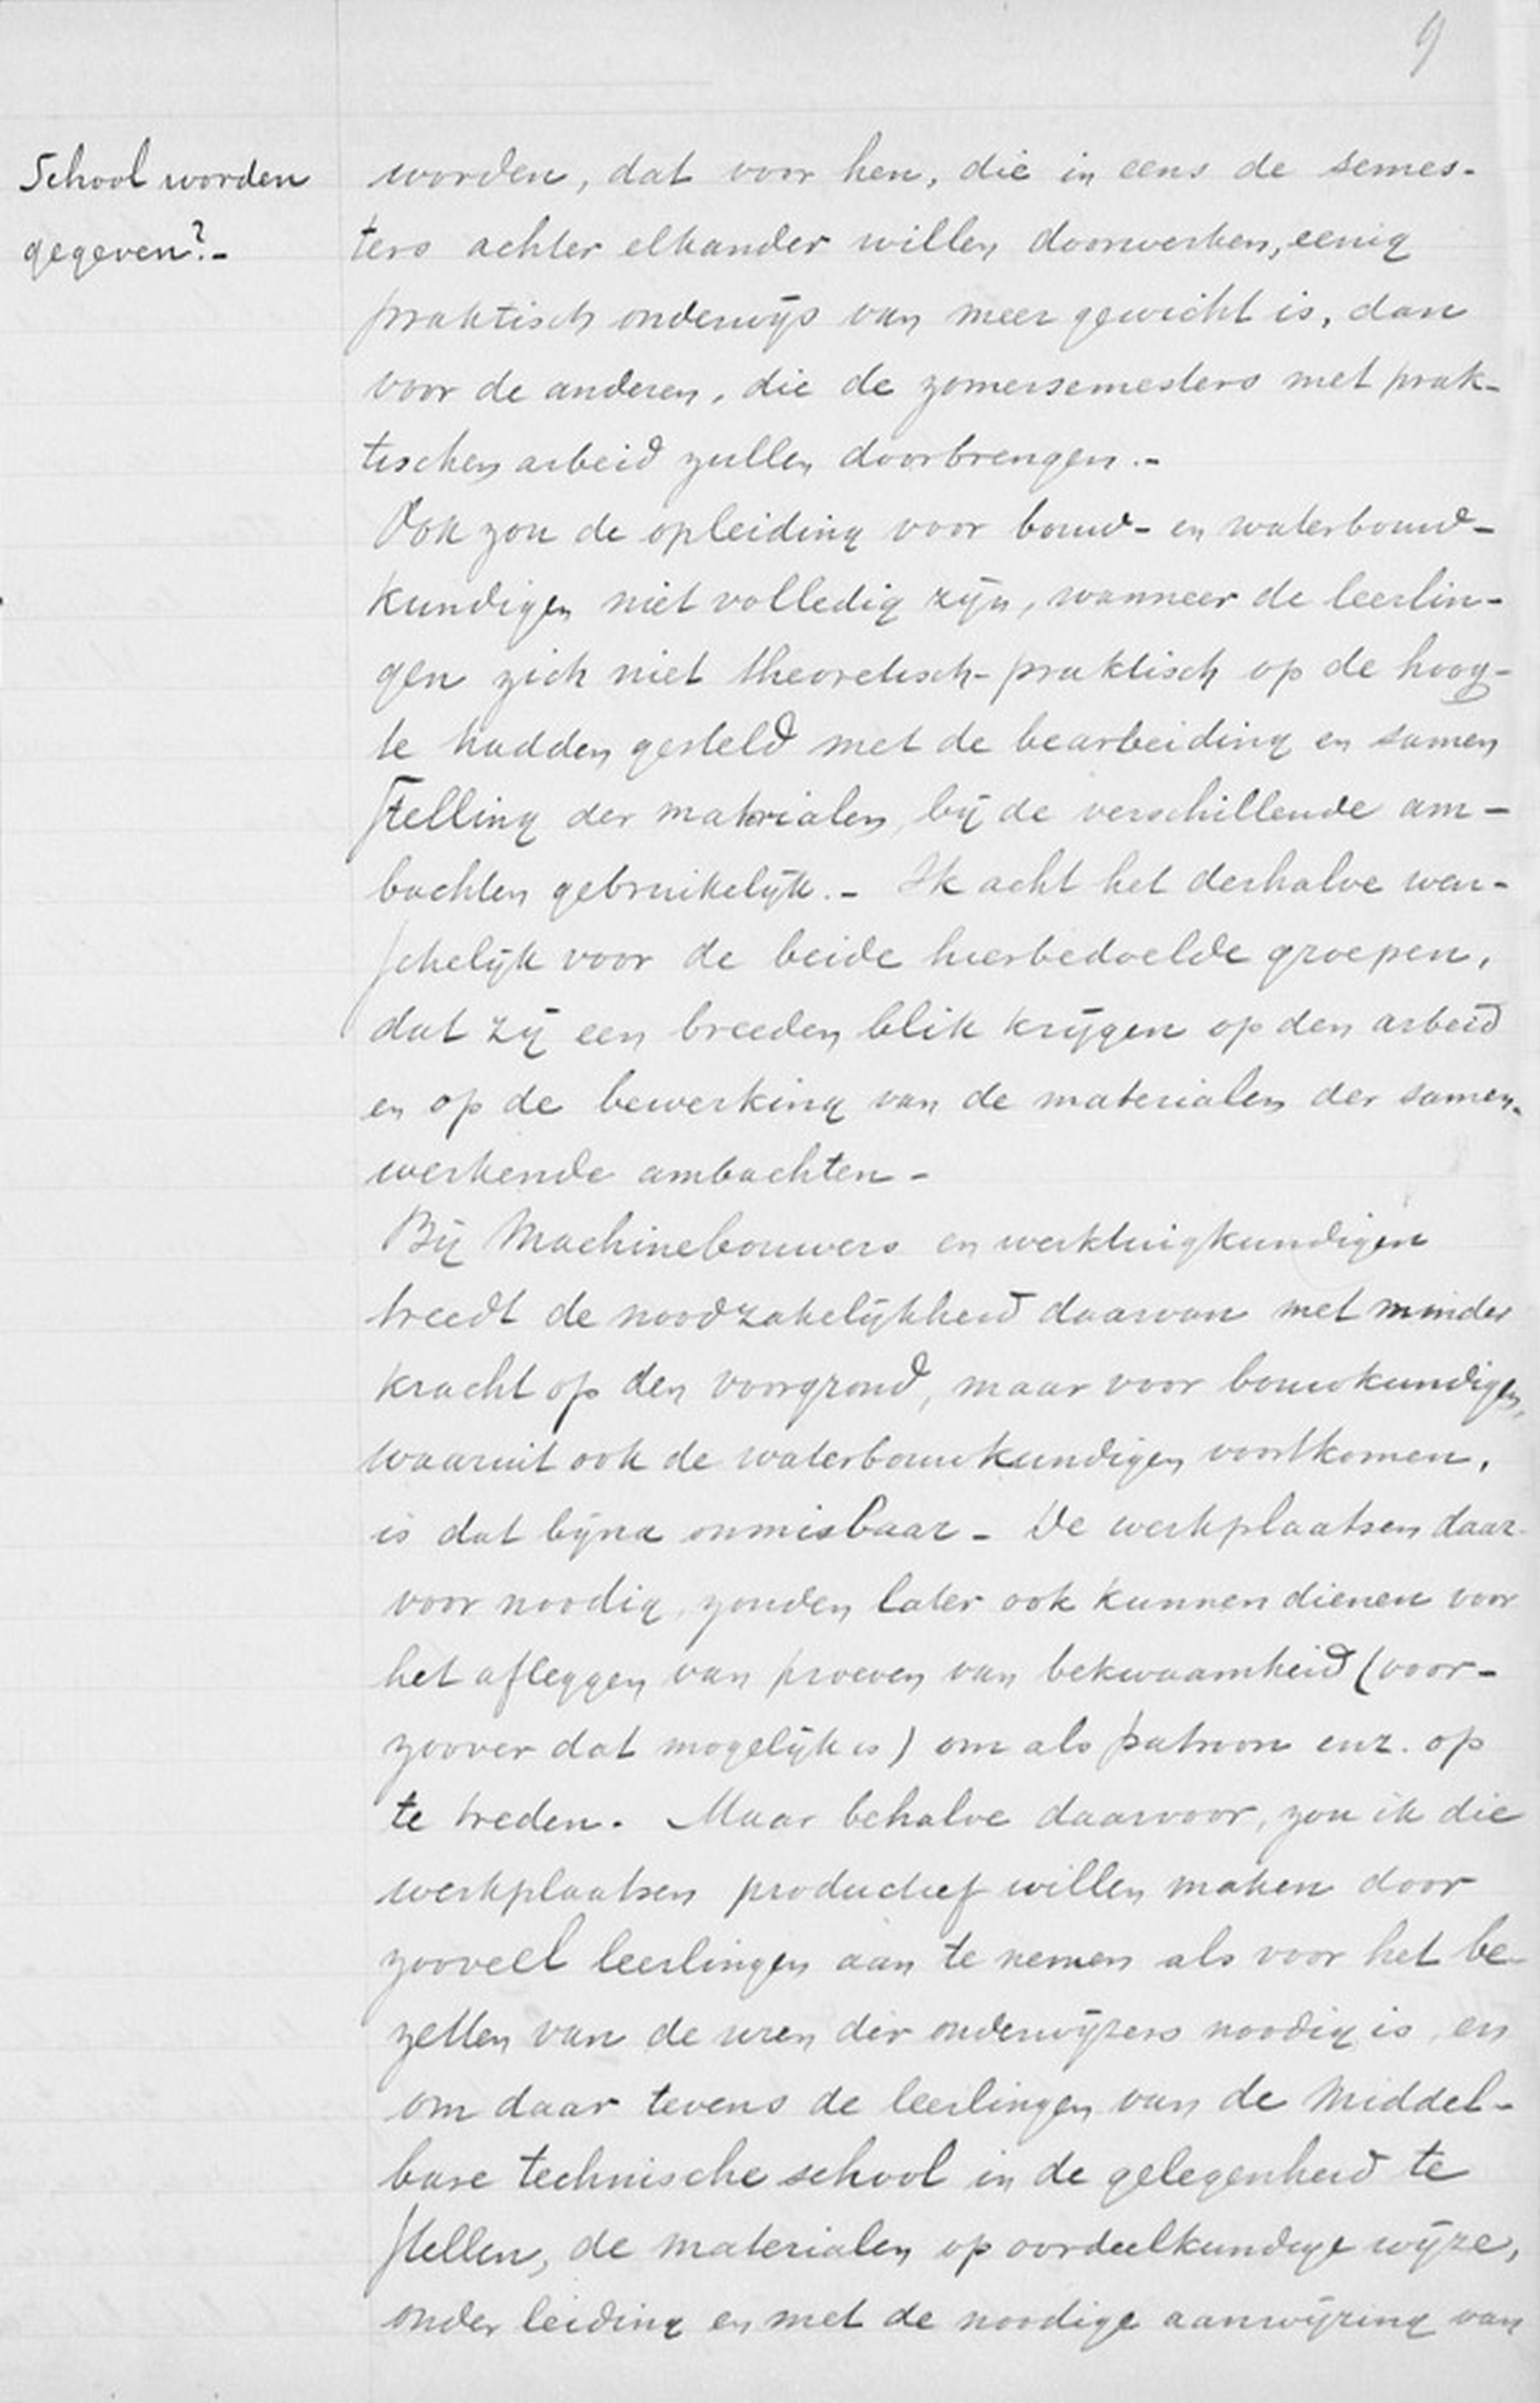 9
School worden
gegeven?.-
worden, dat voor hen, die in eens de semes-
ters achter elkander willen doorwerken, eenig
praktisch onderwijs van meer gewicht is, dan
voor de anderen, die de zomersemesters met prak-
tischen arbeid zullen doorbrengen.-
Ook zou de opleiding voor bouw- en waterbouw-
kundigen niet volledig zijn, wanneer de leerlin-
gen zich niet theoretisch-praktisch op de hoog-
te hadden gesteld met de bearbeiding en samen
stelling der materialen, bij de verschillende am-
bachten gebruikelijk.- Ik acht het derhalve wen-
schelijk voor de beide hierbedoelde groepen,
dat zij een breeden blik krijgen op den arbeid
en op de bewerking van de materialen der samen-
werkende ambachten-
Bij Machinebouwers en werktuigkundigen
treedt de noodzakelijkheid daarvan met minder
kracht op den voorgrond, maar voor bouwkundigen,
waaruit ook de waterbouwkundigen voortkomen,
is dat bijna onmisbaar- De werkplaatsen daar-
voor noodig, zouden later ook kunnen dienen voor
het afleggen van proeven van bekwaamheid (voor-
zoover dat mogelijk is) om als patroon enz. op
te treden. Maar behalve daarvoor, zou ik die
werkplaatsen productief willen maken door
zooveel leerlingen aan te nemen als voor het be-
zetten van de uren der onderwijzers noodig is, en
om daar tevens de leerlingen van de Middel-
bare technische school in de gelegenheid te
stellen, de materialen op oordeelkundige wijze,
onder leiding en met de noodige aanwijzing van